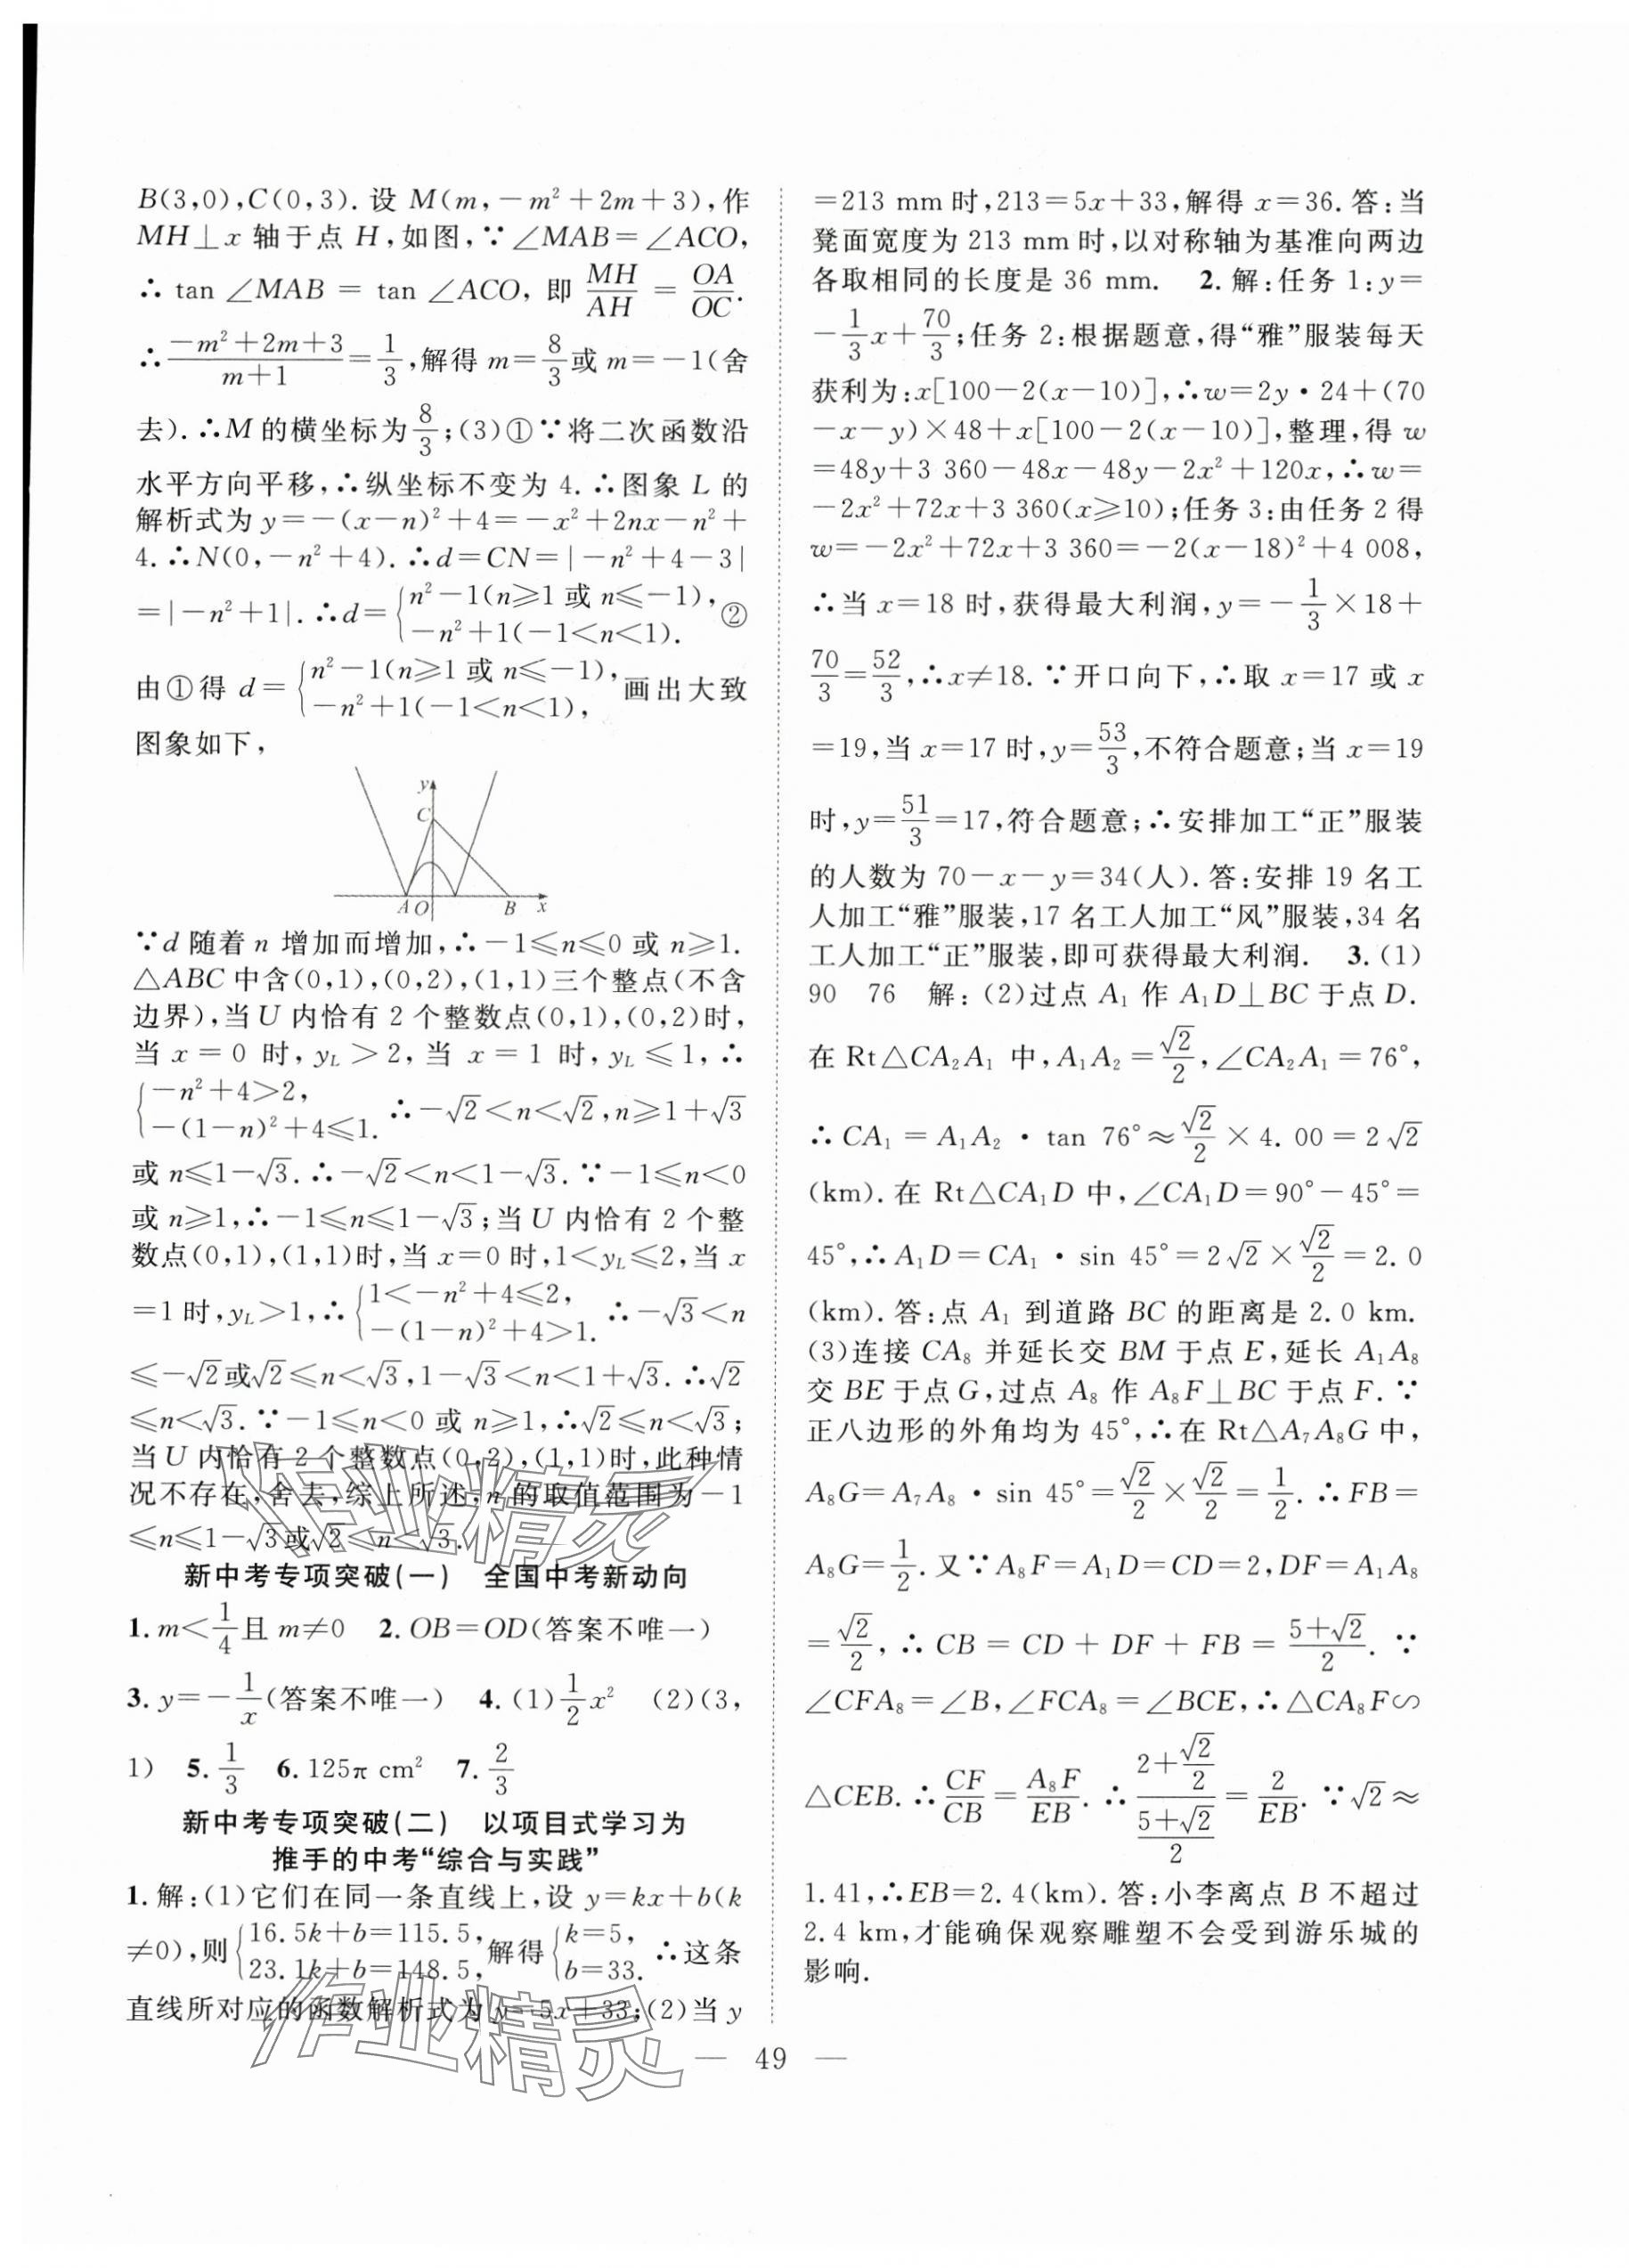 B(3,0),C(0,3).设 M(m,−m²+2m+3),作
MH⊥x 轴于点 H,如图,∵∠MAB=∠ACO,
∴tan∠MAB=tan∠ACO,即 MH/AH=OA/OC.
∴(−m²+2m+3)/(m+1)=1/3,解得 m=8/3或 m=−1(舍
去).∴M 的横坐标为8/3;(3)①∵将二次函数沿
水平方向平移,∴纵坐标不变为 4.∴图象 L 的
解析式为 y=−(x−n)²+4=−x²+2nx−n²+
4.∴N(0,−n²+4).∴d=CN=|−n²+4−3|
=|−n²+1|.∴d={n²−1(n≥1 或 n≤−1), −n²+1(−1<n<1).②
由①得 d={n²−1(n≥1 或 n≤−1), −n²+1(−1<n<1),画出大致
图象如下,
y
C
A O B x
∵d 随着 n 增加而增加,∴−1≤n≤0 或 n≥1.
△ABC 中含(0,1),(0,2),(1,1)三个整点(不含
边界),当 U 内恰有 2 个整数点(0,1),(0,2)时,
当 x=0 时,y_L>2,当 x=1 时,y_L≤1,∴
{−n²+4>2, −(1−n)²+4≤1.∴−√2<n<√2,n≥1+√3
或 n≤1−√3.∴−√2<n<1−√3.∵−1≤n<0
或 n≥1,∴−1≤n≤1−√3;当 U 内恰有 2 个整
数点(0,1),(1,1)时,当 x=0 时,1<y_L≤2,当 x
=1 时,y_L>1,∴{1<−n²+4≤2, −(1−n)²+4>1.∴−√3<n
≤−√2或√2≤n<√3,1−√3<n<1+√3.∴√2
≤n<√3.∵−1≤n<0 或 n≥1,∴√2≤n<√3;
当 U 内恰有 2 个整数点(0,2),(1,1)时,此种情
况不存在,舍去,综上所述,n 的取值范围为−1
≤n≤1−√3或√2≤n<√3.
新中考专项突破(一) 全国中考新动向
1.m<1/4且 m≠0 2.OB=OD(答案不唯一)
3.y=−1/x(答案不唯一) 4.(1)1/2x² (2)(3,
1) 5.1/3 6.125π cm² 7.2/3
新中考专项突破(二) 以项目式学习为
推手的中考“综合与实践”
1.解:(1)它们在同一条直线上,设 y=kx+b(k
≠0),则{16.5k+b=115.5, 23.1k+b=148.5,解得{k=5, b=33.∴这条
直线所对应的函数解析式为 y=5x+33;(2)当 y
=213 mm 时,213=5x+33,解得 x=36.答:当
凳面宽度为 213 mm 时,以对称轴为基准向两边
各取相同的长度是 36 mm. 2.解:任务 1:y=
−1/3x+70/3;任务 2:根据题意,得“雅”服装每天
获利为:x[100−2(x−10)],∴w=2y·24+(70
−x−y)×48+x[100−2(x−10)],整理,得 w
=48y+3 360−48x−48y−2x²+120x,∴w=
−2x²+72x+3 360(x≥10);任务 3:由任务 2 得
w=−2x²+72x+3 360=−2(x−18)²+4 008,
∴当 x=18 时,获得最大利润,y=−1/3×18+
70/3=52/3,∴x≠18.∵开口向下,∴取 x=17 或 x
=19,当 x=17 时,y=53/3,不符合题意;当 x=19
时,y=51/3=17,符合题意;∴安排加工“正”服装
的人数为 70−x−y=34(人).答:安排 19 名工
人加工“雅”服装,17 名工人加工“风”服装,34 名
工人加工“正”服装,即可获得最大利润. 3.(1)
90 76 解:(2)过点 A₁ 作 A₁D⊥BC 于点 D.
在 Rt△CA₂A₁ 中,A₁A₂=√2/2,∠CA₂A₁=76°,
∴CA₁=A₁A₂·tan 76°≈√2/2×4.00=2√2
(km).在 Rt△CA₁D 中,∠CA₁D=90°−45°=
45°,∴A₁D=CA₁·sin 45°=2√2×√2/2=2.0
(km).答:点 A₁ 到道路 BC 的距离是 2.0 km.
(3)连接 CA₈ 并延长交 BM 于点 E,延长 A₁A₈
交 BE 于点 G,过点 A₈ 作 A₈F⊥BC 于点 F.∵
正八边形的外角均为 45°,∴在 Rt△A₇A₈G 中,
A₈G=A₇A₈·sin 45°=√2/2×√2/2=1/2.∴FB=
A₈G=1/2.又∵A₈F=A₁D=CD=2,DF=A₁A₈
=√2/2,∴CB=CD+DF+FB=(5+√2)/2.∵
∠CFA₈=∠B,∠FCA₈=∠BCE,∴△CA₈F∽
△CEB.∴CF/CB=A₈F/EB.∴(2+√2/2)/((5+√2)/2)=2/EB.∵√2≈
1.41,∴EB=2.4(km).答:小李离点 B 不超过
2.4 km,才能确保观察雕塑不会受到游乐城的
影响.
— 49 —
作业精灵
作业精灵